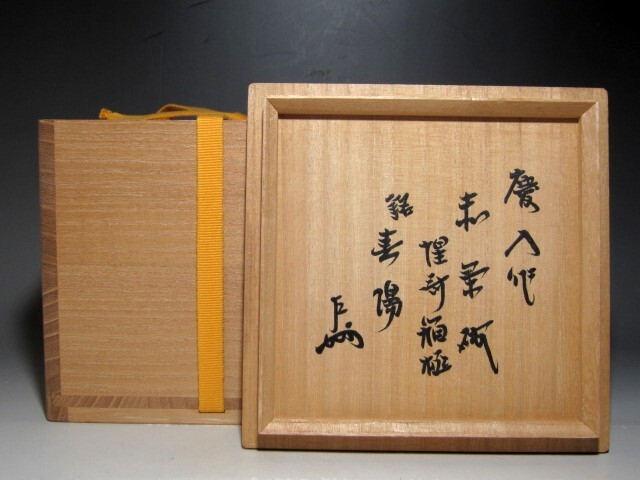 慶入作
赤茶碗
惺斎箱極
銘 春陽